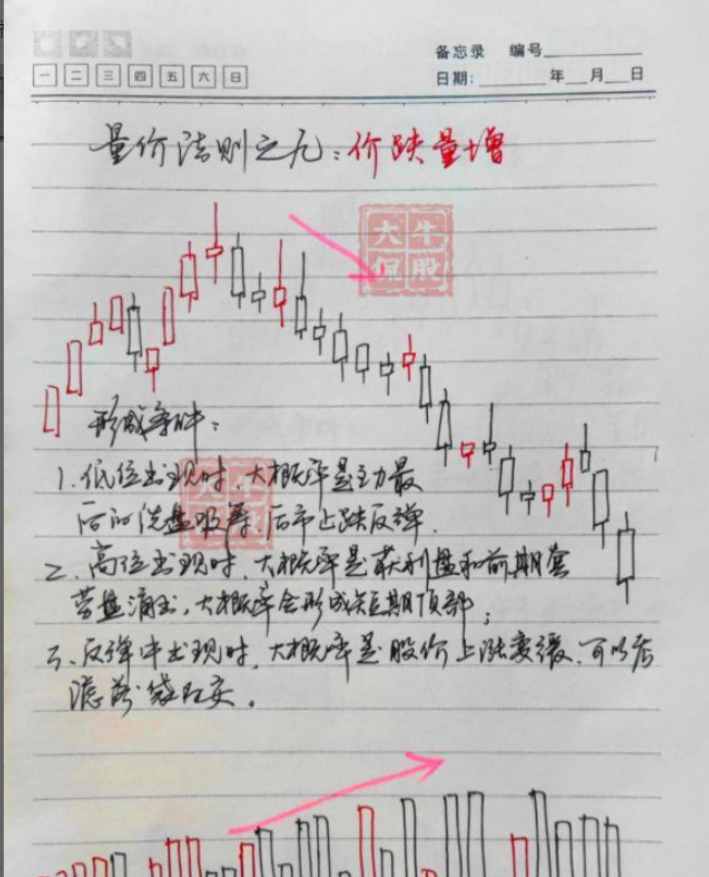 备忘录 编号
一 二 三 四 五 六 日
日期: 年 月 日
量价法则之九:价跌量增
大牛
侃股
形成条件:
1.低位出现时,大概率是主力最
后的洗盘吸筹,后市止跌反弹.
2、高位出现时,大概率是获利盘和前期套
劳盘涌出,大概率会形成短期顶部;
3、反弹中出现时,大概率是股价上涨变缓,可以考
虑落袋为安。
大牛